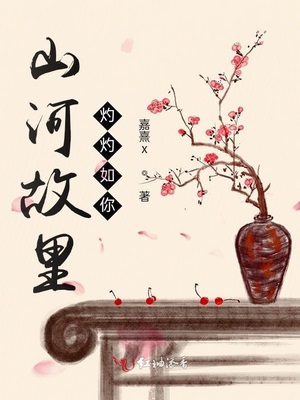 山河故里
灼灼如你
嘉熹x
著
红袖添香